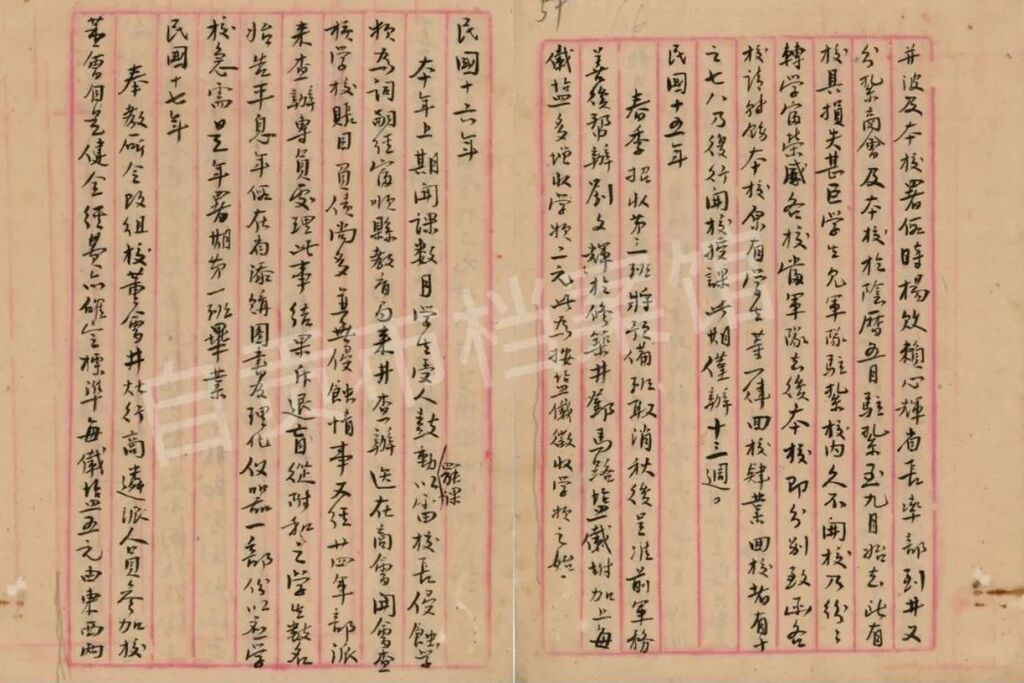 并波及本校署但時楊致賴心輝省長率部到井又
分紮商會及本校於陰曆五月駐紮至九月始去此有
校具損失甚巨學生見軍隊駐紮校内久不開校乃紛紛
轉學富榮威各校當軍隊去後本校即分别致函各
校請轉飭本校原有學生等一律回校肄業回校者有十
之七八乃復行開校授課此期僅辦十三週。
民國十五年
春季招收第三班將預備班取消秋後呈准前軍務
善後幫辦劉文輝於修築井鄧馬路鹽儎附加上每
儎鹽多增收學款二元此為按鹽儎徵收學款之始.
民國十六年
本年上期開課數月學生受人鼓動罷課以當校長侵蝕學
款為詞嗣經富順縣教育局來井查辦迭在商會開會查
核學校賬目負債尚多並無侵蝕情事又經廿四軍部派
來查辦專員處理此事結果斥退盲從附和之學生數名
始告平息年假在省添購圖書及理化仪器一部份以應學
校急需是年署期第一班畢業
民國十七年
奉教廳令改組校董會井灶行商遴派人員參加校
董會自是健全經費亦確定標準每儎鹽五元由東西兩
57
自貢市档案馆